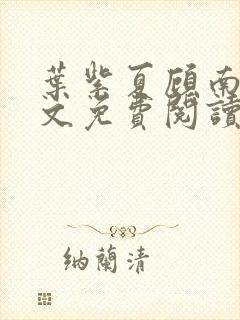 葉紫夏顧南
文免費閱讀
纳蘭清